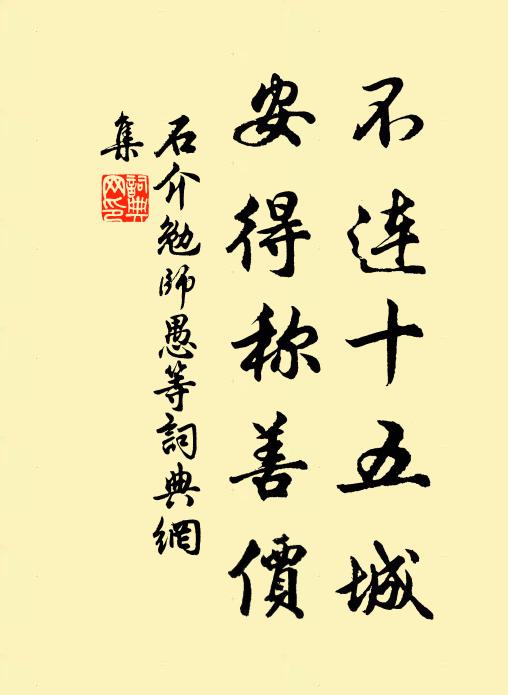 不连十五城
安得称善價
石介勉師愚等詞典網
集
詞典网印